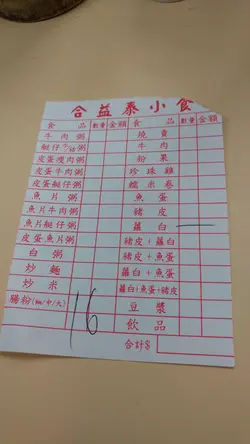 合益泰小食
食品 數量 金額 食品 數量 金額
牛肉粥 燒賣
艇仔粥 牛肉
皮蛋瘦肉粥 粉果
皮蛋牛肉粥 珍珠雞
皮蛋艇仔粥 糯米卷
魚片粥 魚蛋
魚片牛肉粥 豬皮
魚片艇仔粥 蘿白
皮蛋魚片粥 豬皮+蘿白
白粥 豬皮+魚蛋
炒麵 蘿白+魚蛋
炒米 蘿白+魚蛋+豬皮
腸粉(細/中/大) 16 豆漿
飲品
合計$